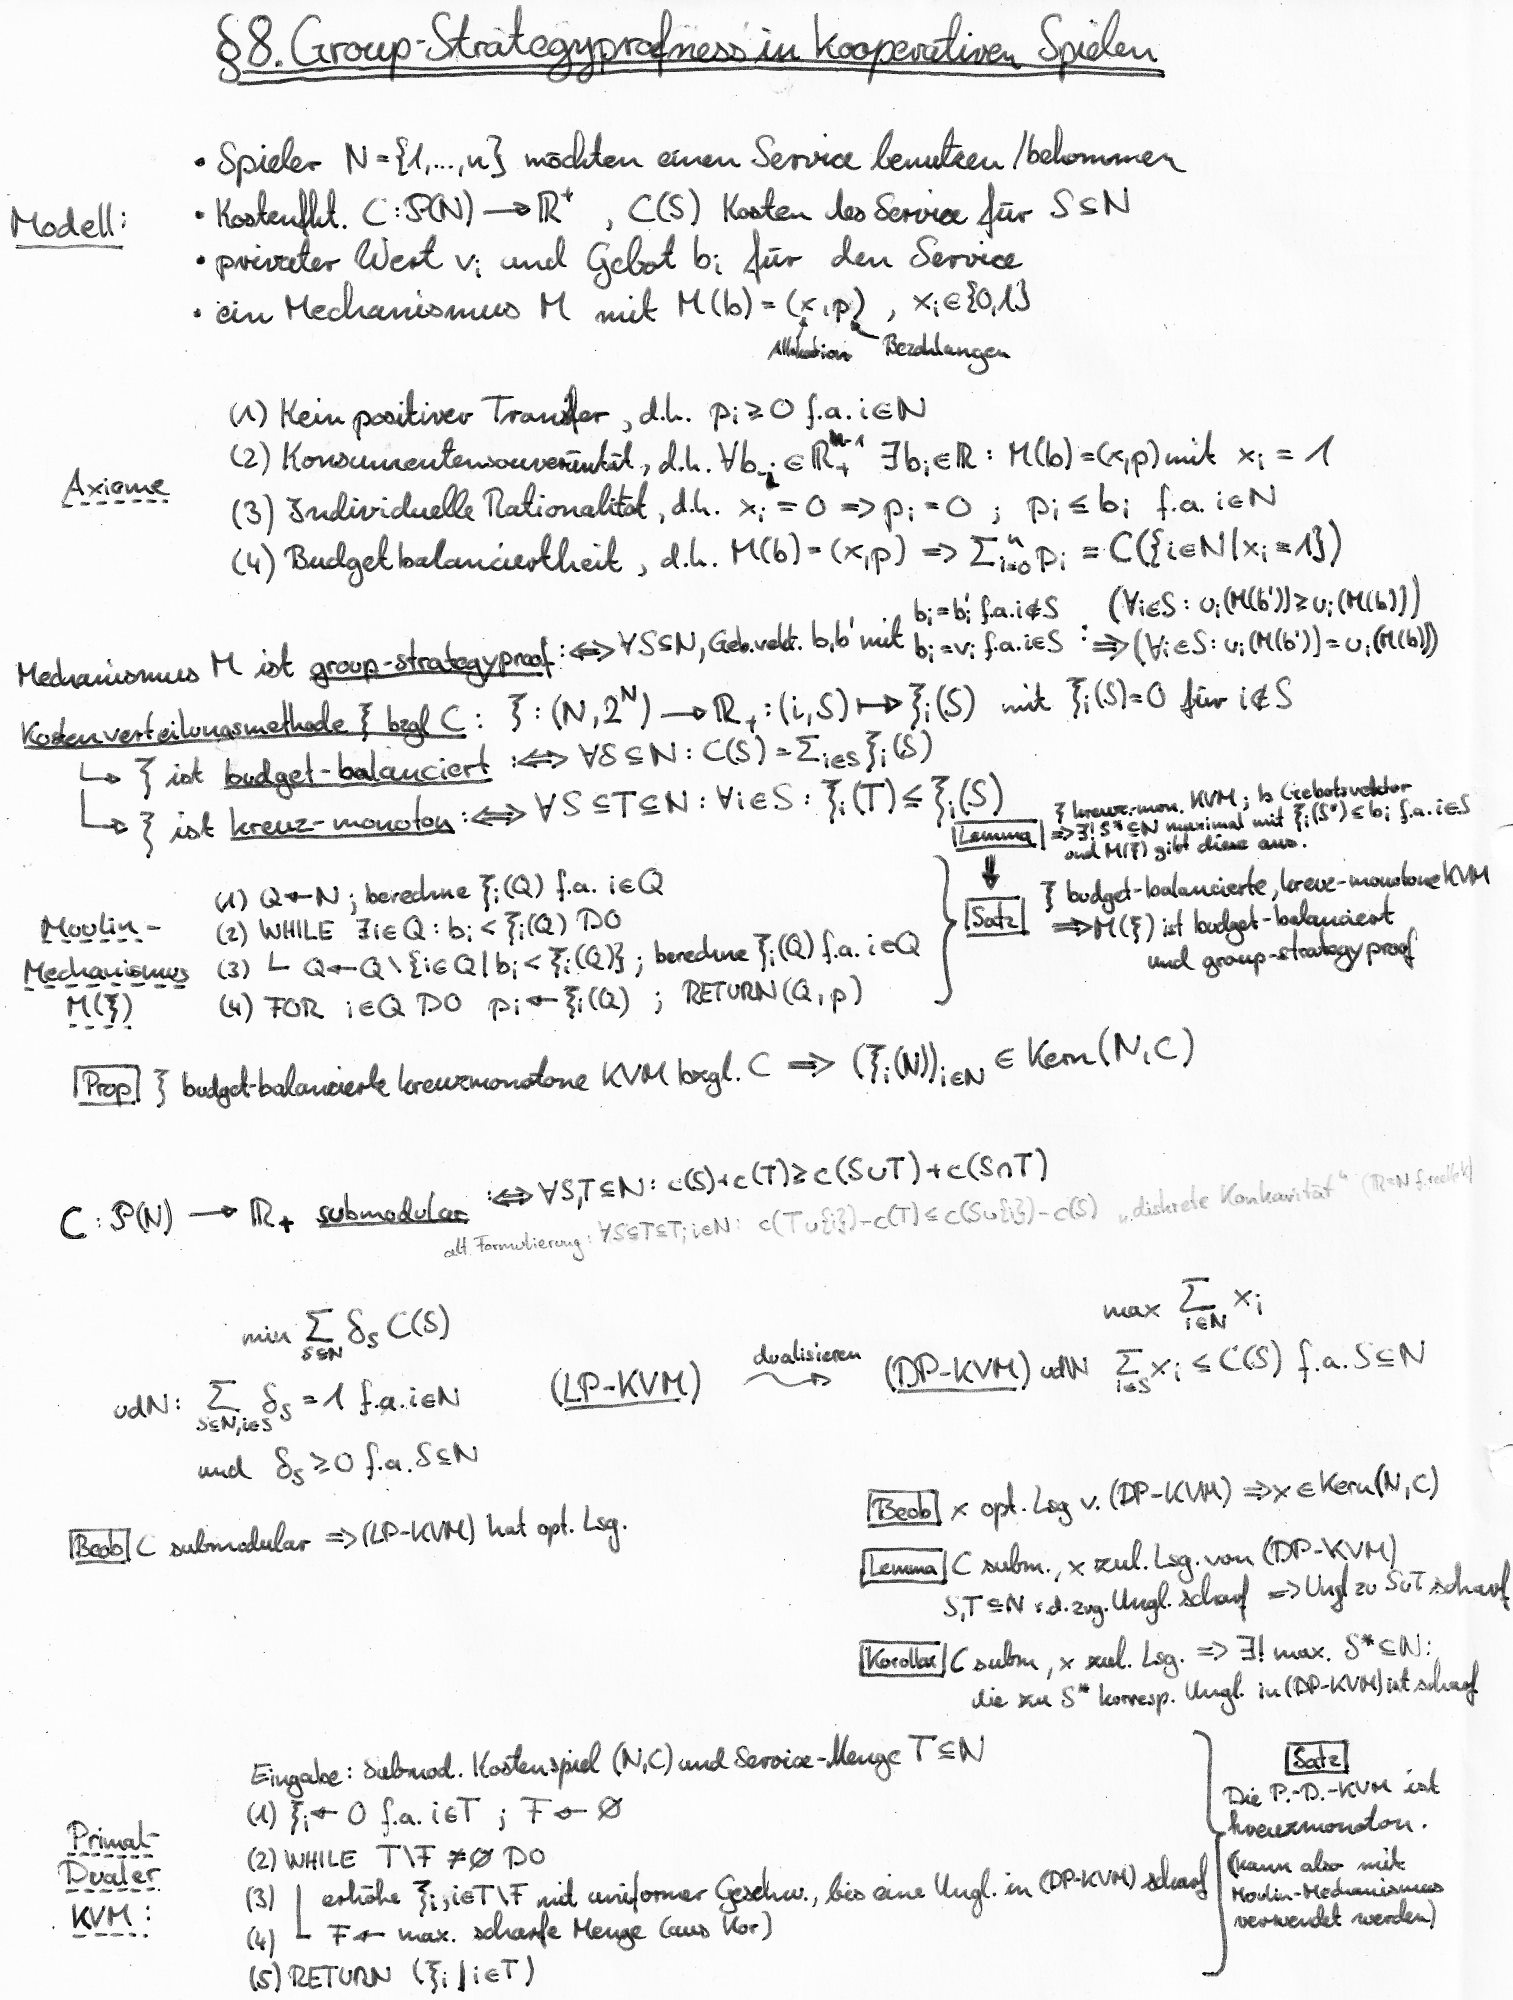 §8. Group-Strategyprofness in kooperativen Spielen
• Spieler N={1,...,n} möchten einen Service benutzen/bekommen
Modell:
• Kostenfkt. C: P(N) → ℝ⁺, C(S) Kosten des Service für S⊆N
• privater Wert vᵢ und Gebot bᵢ für den Service
• ein Mechanismus M mit M(b)=(x,p), xᵢ∈{0,1}
Allokation Bezahlungen
Axiome
(1) Kein positiver Transfer, d.h. pᵢ≥0 f.a. i∈N
(2) Konsumentensouveränität, d.h. ∀b₋ᵢ∈ℝ₊ⁿ⁻¹ ∃bᵢ∈ℝ: M(b)=(x,p) mit xᵢ=1
(3) Individuelle Rationalität, d.h. xᵢ=0 ⇒ pᵢ=0; pᵢ≤bᵢ f.a. i∈N
(4) Budgetbalanciertheit, d.h. M(b)=(x,p) ⇒ ∑ᵢ₌₀ⁿ pᵢ = C({i∈N|xᵢ=1})
Mechanismus M ist group-strategyproof :⇔ ∀S⊆N, Geb.vekt. b,b' mit
bᵢ=b'ᵢ f.a. i∉S
bᵢ=vᵢ f.a. i∈S :
(∀i∈S: uᵢ(M(b'))≥uᵢ(M(b)))
⇒(∀i∈S: uᵢ(M(b'))=uᵢ(M(b)))
Kostenverteilungsmethode ξ bzgl C: ξ: (N,2ᴺ) → ℝ₊: (i,S) ↦ ξᵢ(S) mit ξᵢ(S)=0 für i∉S
↳ ξ ist budget-balanciert :⇔ ∀S⊆N: C(S)=∑i∈S ξᵢ(S)
↳ ξ ist kreuz-monoton :⇔ ∀S⊆T⊆N: ∀i∈S: ξᵢ(T)≤ξᵢ(S)
Lemma ξ kreuz-mon. KVM; b Gebotsvektor
⇒∃! S*⊆N maximal mit ξᵢ(S*)≤bᵢ f.a. i∈S
und M(ξ) gibt diese aus.
⇓
Satz ξ budget-balancierte, kreuz-monotone KVM
⇒M(ξ) ist budget-balanciert
und group-strategyproof
Moulin-
Mechanismus
M(ξ)
(1) Q←N; berechne ξᵢ(Q) f.a. i∈Q
(2) WHILE ∃i∈Q: bᵢ<ξᵢ(Q) DO
(3) Q←Q\{i∈Q|bᵢ<ξᵢ(Q)}; berechne ξᵢ(Q) f.a. i∈Q
(4) FOR i∈Q DO pᵢ←ξᵢ(Q); RETURN(Q,p)
Prop ξ budget-balancierte kreuzmonotone KVM bzgl. C ⇒ (ξᵢ(N))i∈N ∈ Kern(N,C)
C: P(N) → ℝ₊ submodular :⇔ ∀S,T⊆N: c(S)+c(T)≥c(S∪T)+c(S∩T)
alt. Formulierung: ∀S⊆T⊆T; i∈N: c(T∪{i})-c(T)≤c(S∪{i})-c(S) „diskrete Konkavität"
min ∑S⊆N δ_S C(S)
udN: ∑S⊆N,i∈S δ_S=1 f.a. i∈N
und δ_S≥0 f.a. S⊆N
(LP-KVM)
dualisieren
(DP-KVM)
max ∑i∈N xᵢ
udN ∑i∈S xᵢ≤C(S) f.a. S⊆N
Beob C submodular ⇒(LP-KVM) hat opt. Lsg.
Beob x opt. Lsg v. (DP-KVM) ⇒x∈Kern(N,C)
Lemma C subm., x zul. Lsg. von (DP-KVM)
S,T⊆N s.d. zug. Ungl. scharf ⇒ Ungl zu S∪T scharf
Korollar C subm, x zul. Lsg. ⇒ ∃! max. S*⊆N:
die zu S* korresp. Ungl. in (DP-KVM) ist scharf
Primal-
Dualer
KVM:
Eingabe: submod. Kostenspiel (N,C) und Service-Menge T⊆N
(1) ξᵢ←0 f.a. i∈T; F←∅
(2) WHILE T\F≠∅ DO
(3) erhöhe ξᵢ, i∈T\F mit uniformer Geschw., bis eine Ungl. in (DP-KVM) scharf
(4) F← max. scharfe Menge (aus Kor)
(5) RETURN (ξᵢ|i∈T)
Satz
Die P.-D.-KVM ist
kreuzmonoton.
(kann also mit
Moulin-Mechanismus
verwendet werden)